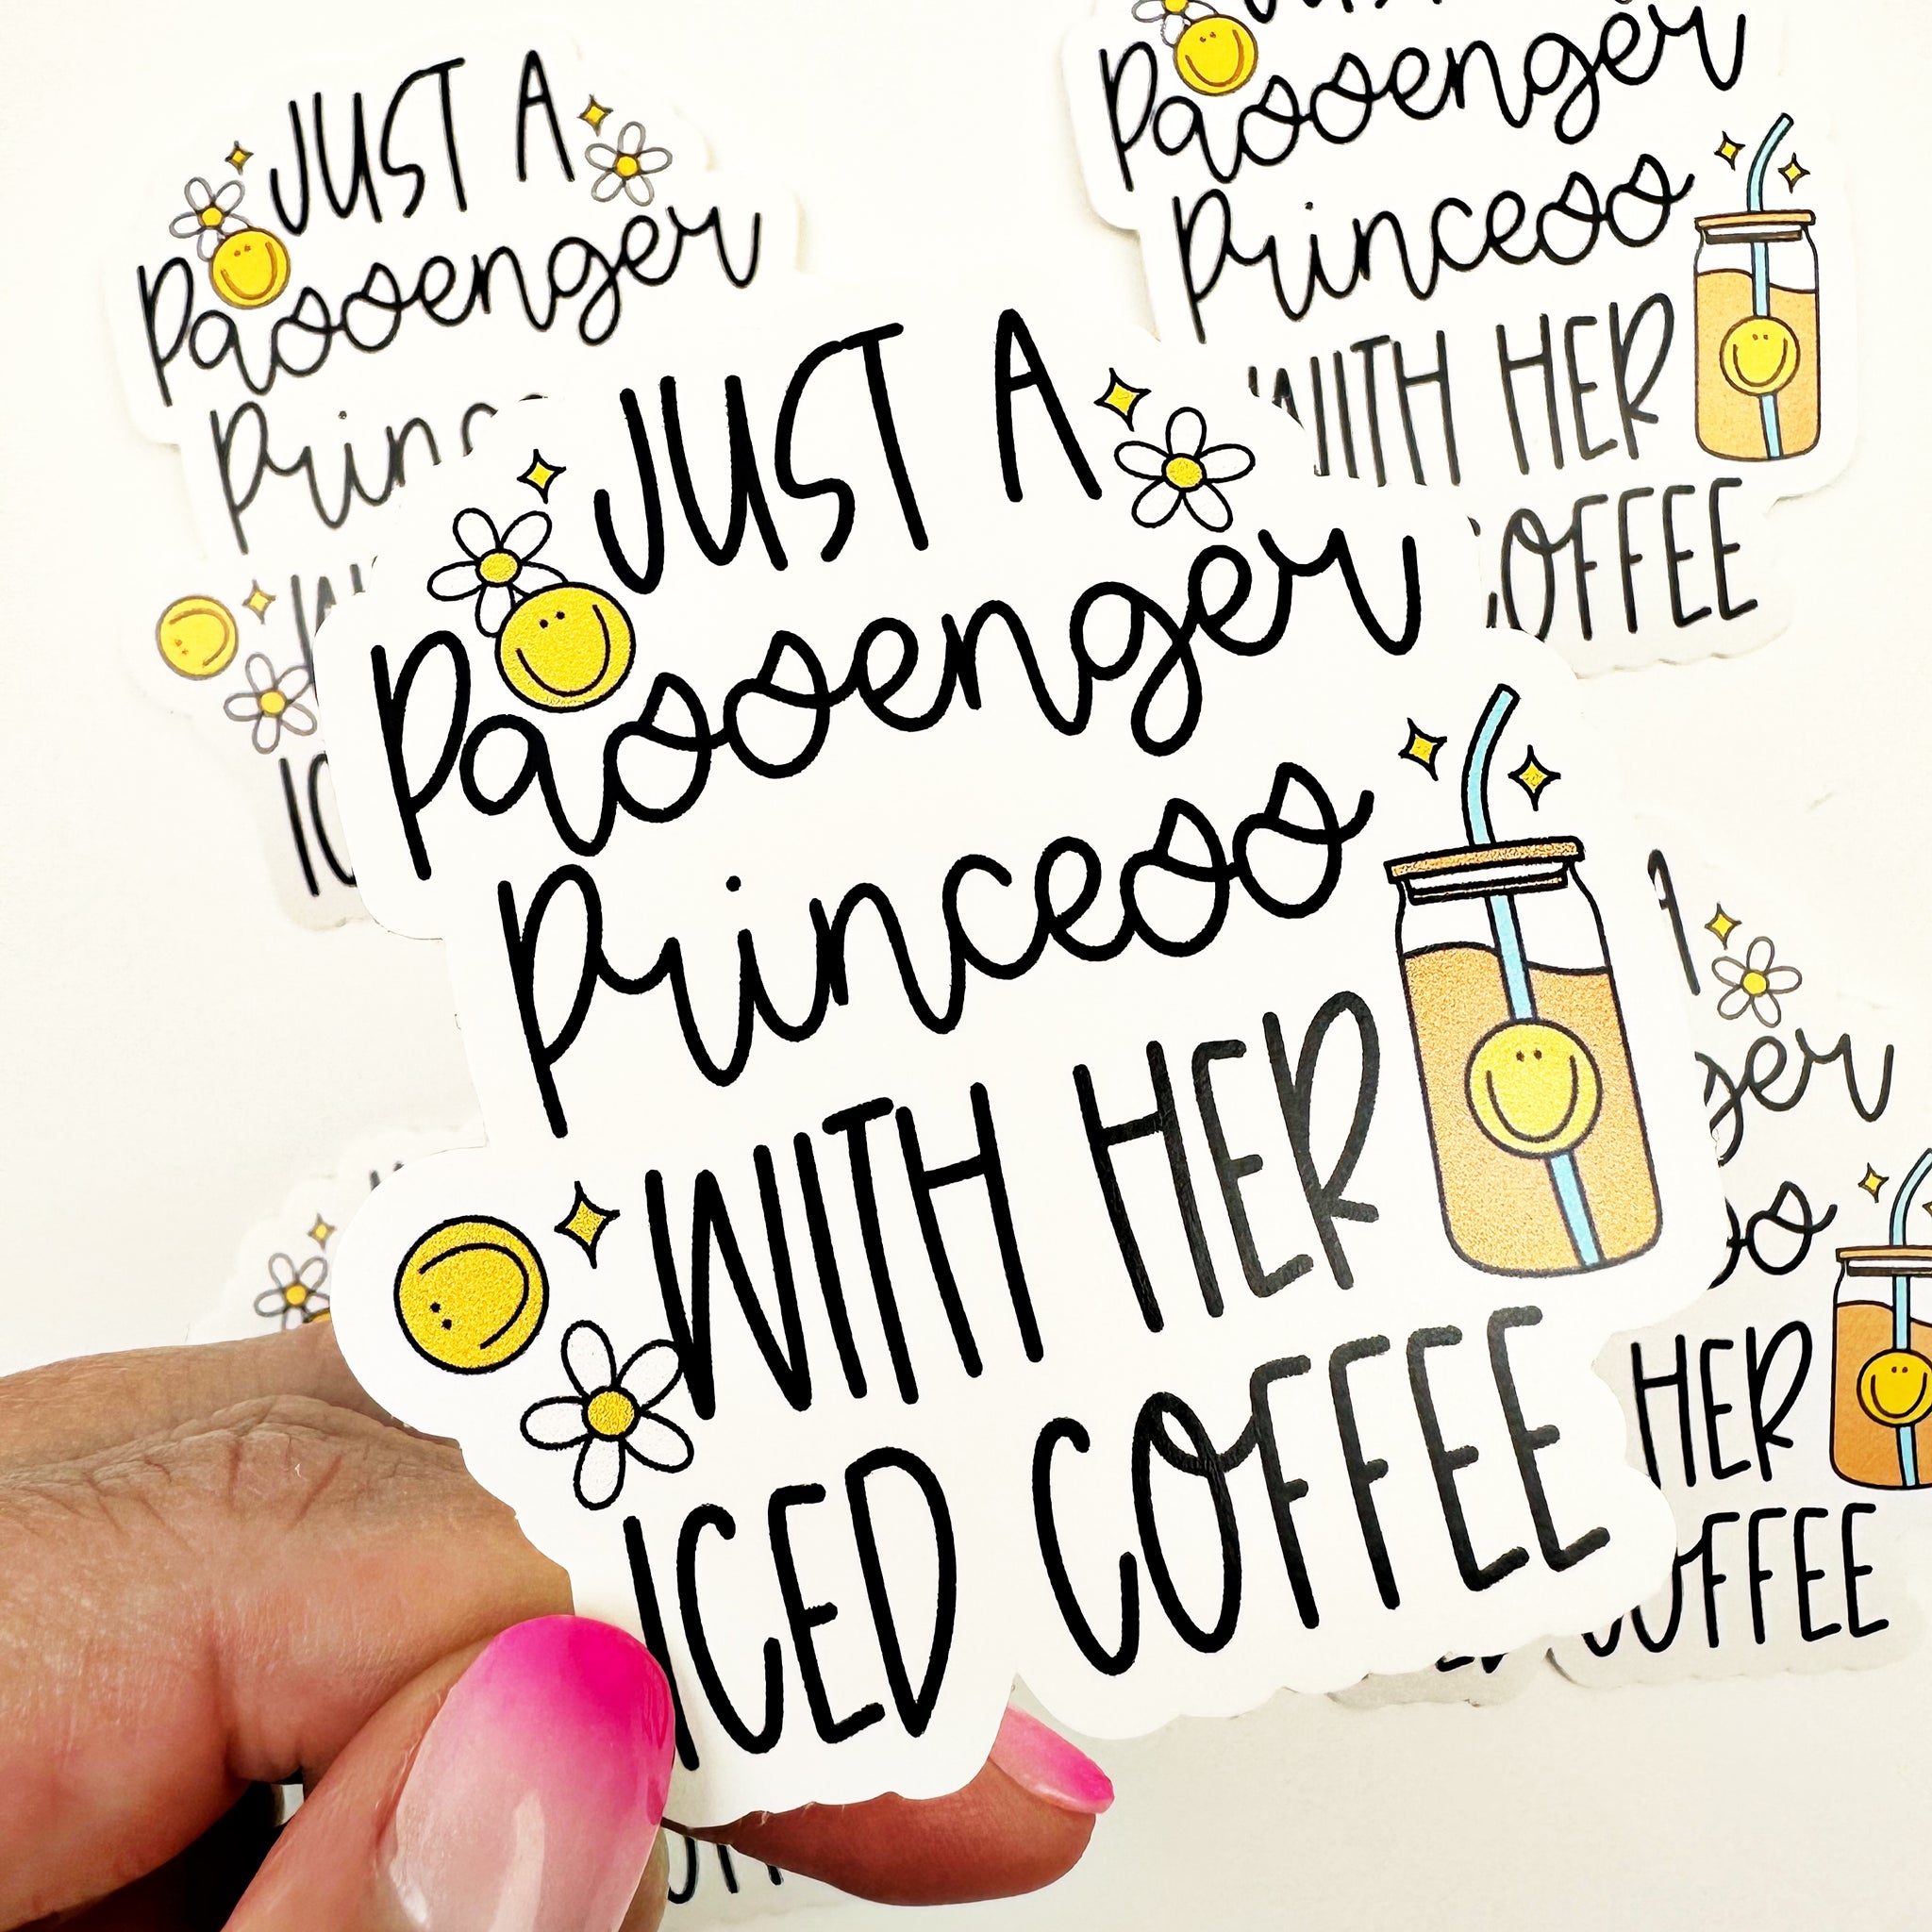 JUST A
Passenger
Princess
WITH HER
ICED COFFEE
JUST A
Passenger
Passenger
Princess
WITH HER
COFFEE
HER
COFFEE